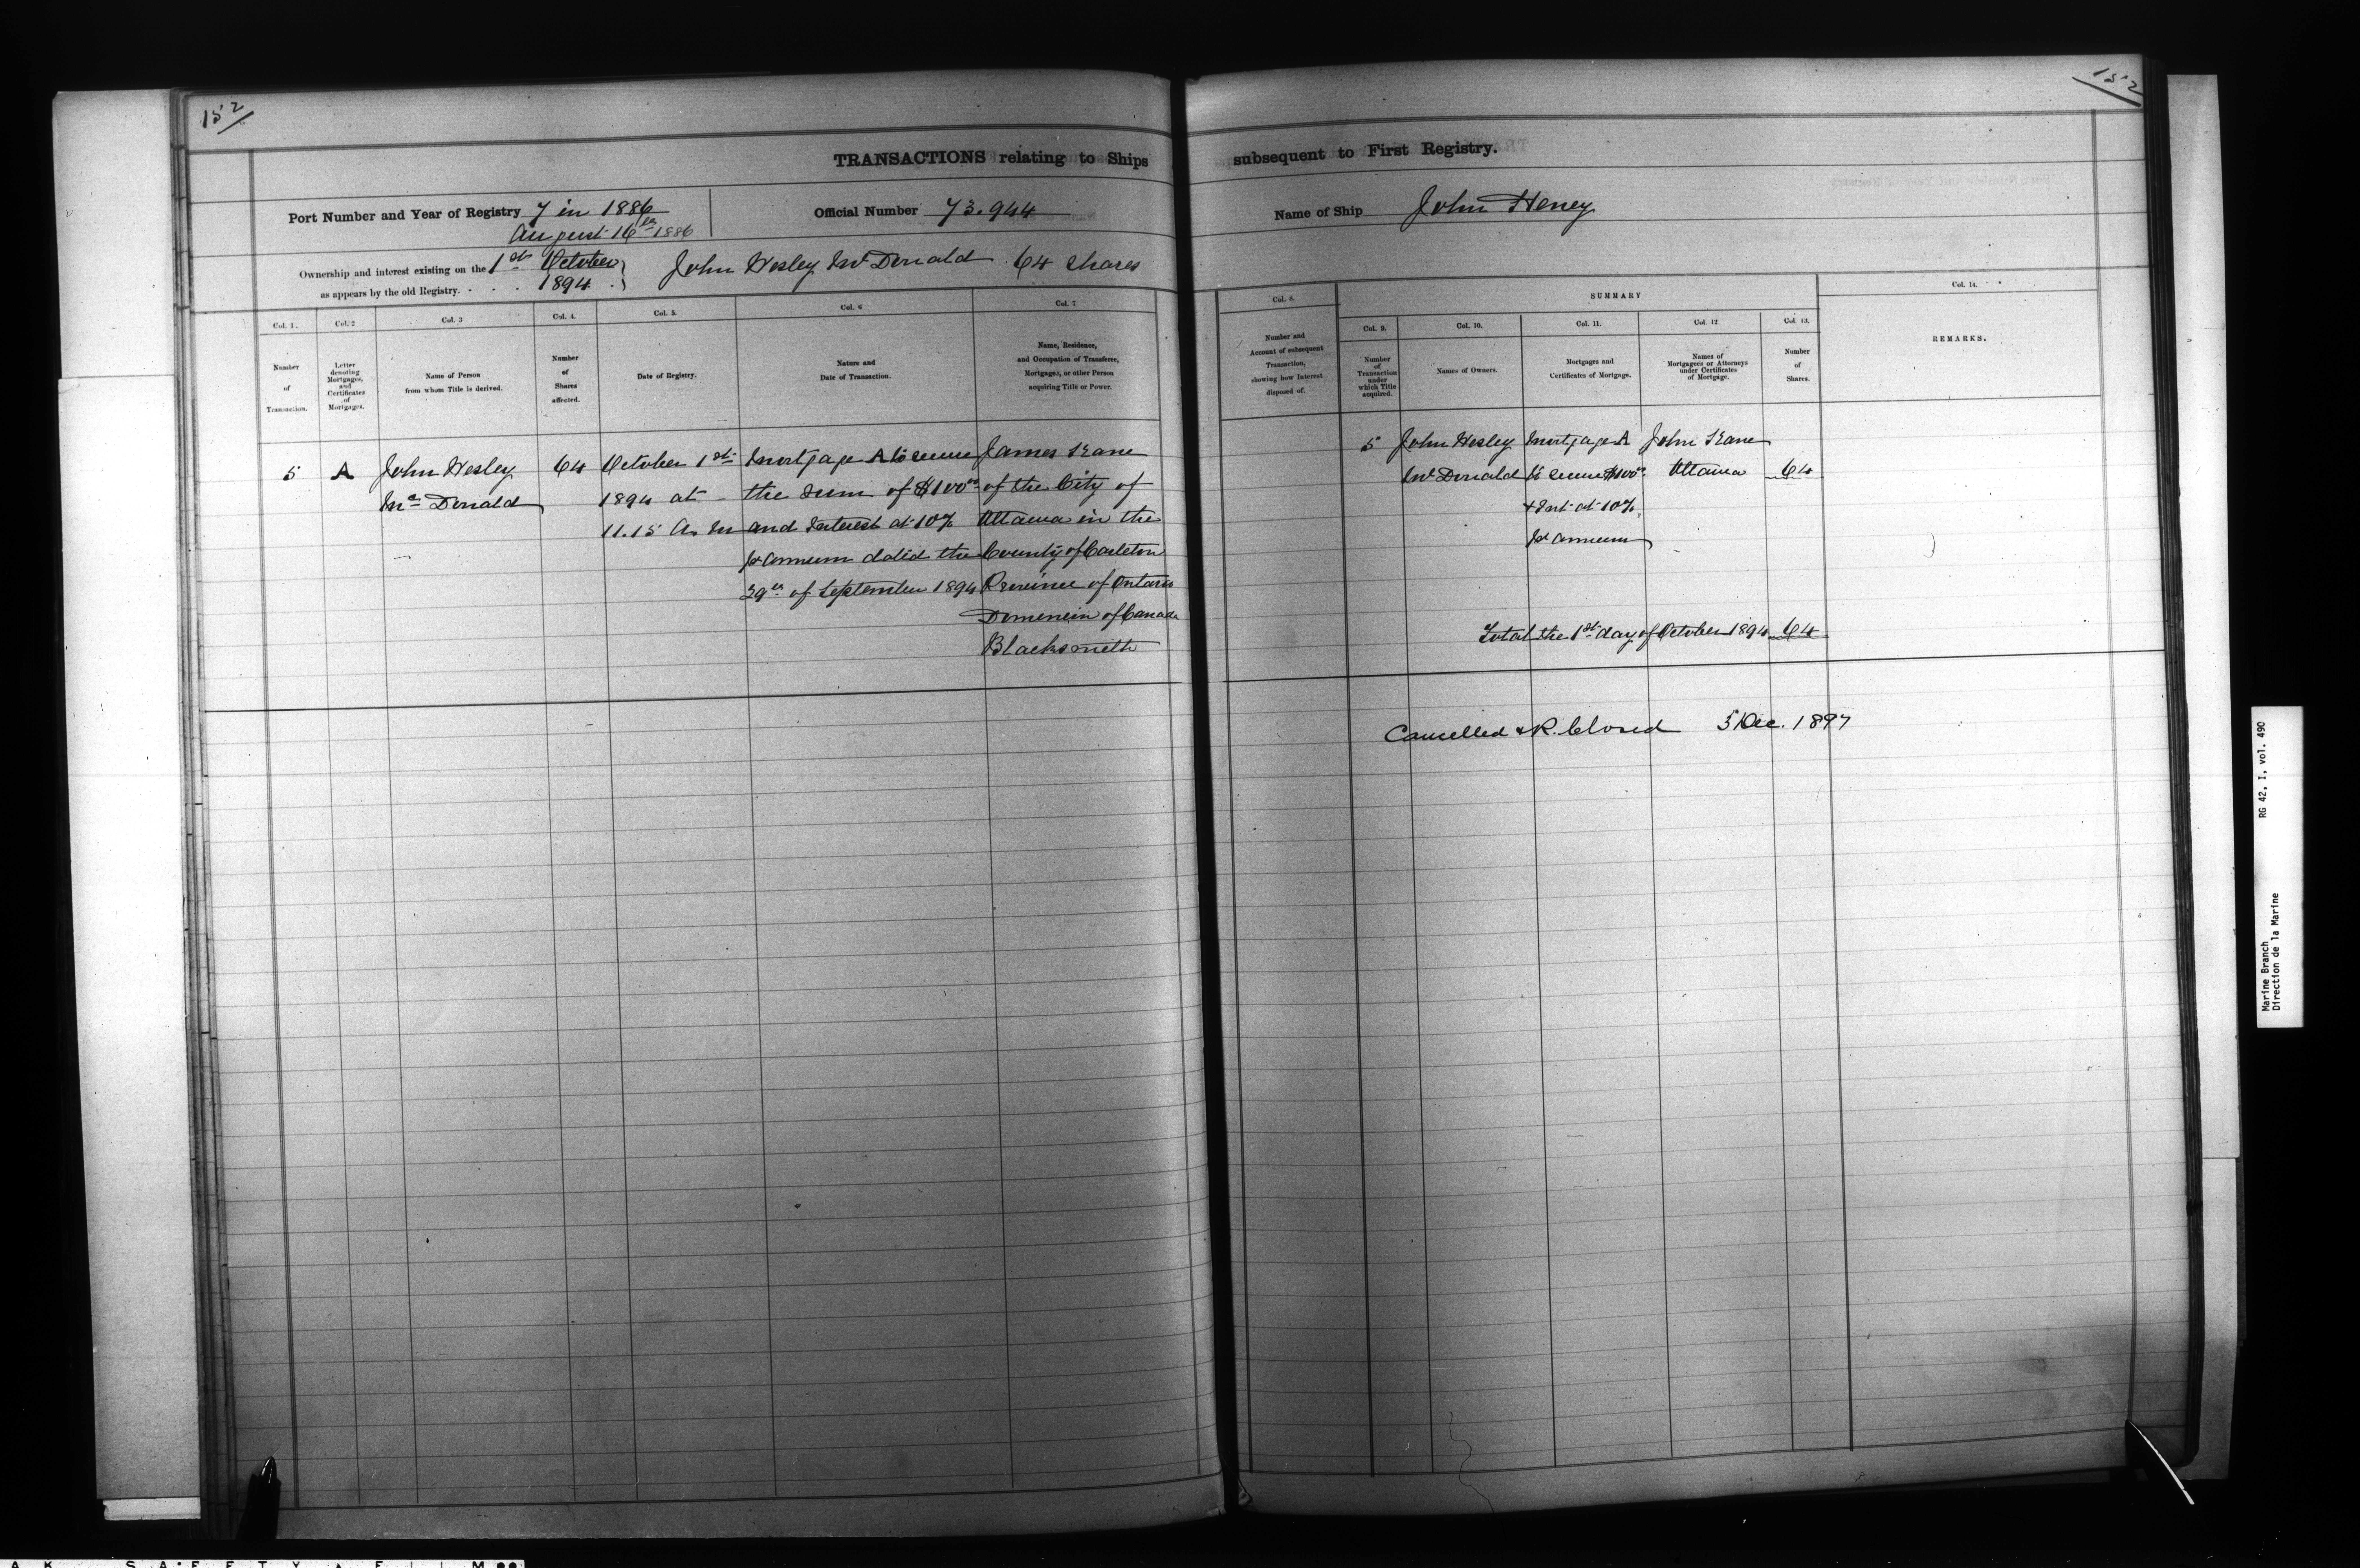 152
TRANSACTIONS relating to Ships
Port Number and Year of Registry 7 in 1886
August 16th 1886
Official Number 73.944
Ownership and interest existing on the 1st October
as appears by the old Registry. - - . 1894 .
John Wesley McDonald 64 shares
Col. 1.
Number
of
Transaction.
Col. 2
Letter
denoting
Mortgages,
and
Certificates
of
Mortgages.
Col. 3
Name of Person
from whom Title is derived.
Col. 4.
Number
of
Shares
affected.
Col. 5.
Date of Registry.
Col. 6
Nature and
Date of Transaction.
Col. 7
Name, Residence,
and Occupation of Transferee,
Mortgagee, or other Person
acquiring Title or Power.
5
A
John Wesley
Mc Donald
64
October 1st
1894 at
11.15 A M
Mortgage A to secure
the sum of $100.00
and Interest at 10%
pr annum dated the
29th of September 1894
James
of the City of
Ottawa in the
County of Carleton
Province of Ontario
Dominion of Canada
Blacksmith
152
subsequent to First Registry.
Name of Ship John Heney
Col. 8.
Number and
Account of subsequent
Transaction,
showing how Interest
disposed of.
SUMMARY
Col. 9.
Number
of
Transaction
under
which Title
acquired.
Col. 10.
Names of Owners.
Col. 11.
Mortgages and
Certificates of Mortgage.
Col. 12
Names of
Mortgagees or Attorneys
under Certificates
of Mortgage.
Col. 13.
Number
of
Shares.
Col. 14.
REMARKS.
5
John Wesley
McDonald
Mortgage A
to secure $100.00
+ Int at 10%
pr annum
John
Ottawa
64
Total the 1st day of October 1894 64
Cancelled & R. Closed 3 Dec. 1897
RG 42, I, vol. 490
Marine Branch
Direction de la Marine
A K SAFETY FILM